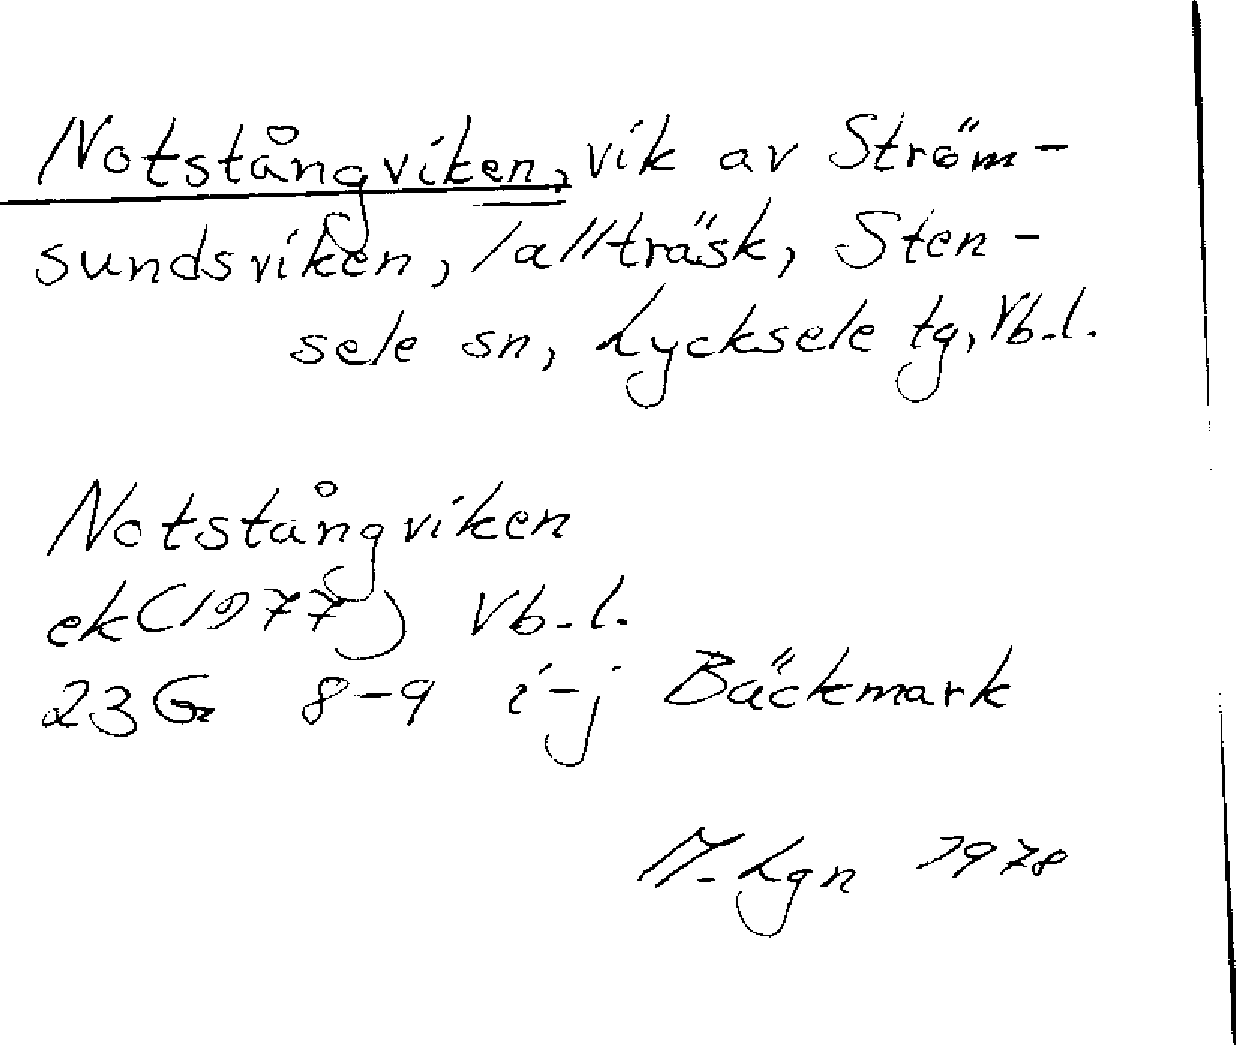 Notstångviken, vik av Ström-
sundsviken, Sten-
sele sn, Lycksele tg, Vb.l.
Notstångviken
ek (1977) Vb.l.
23G 8-9 i-j Bäckmark
M. Lgn 1978